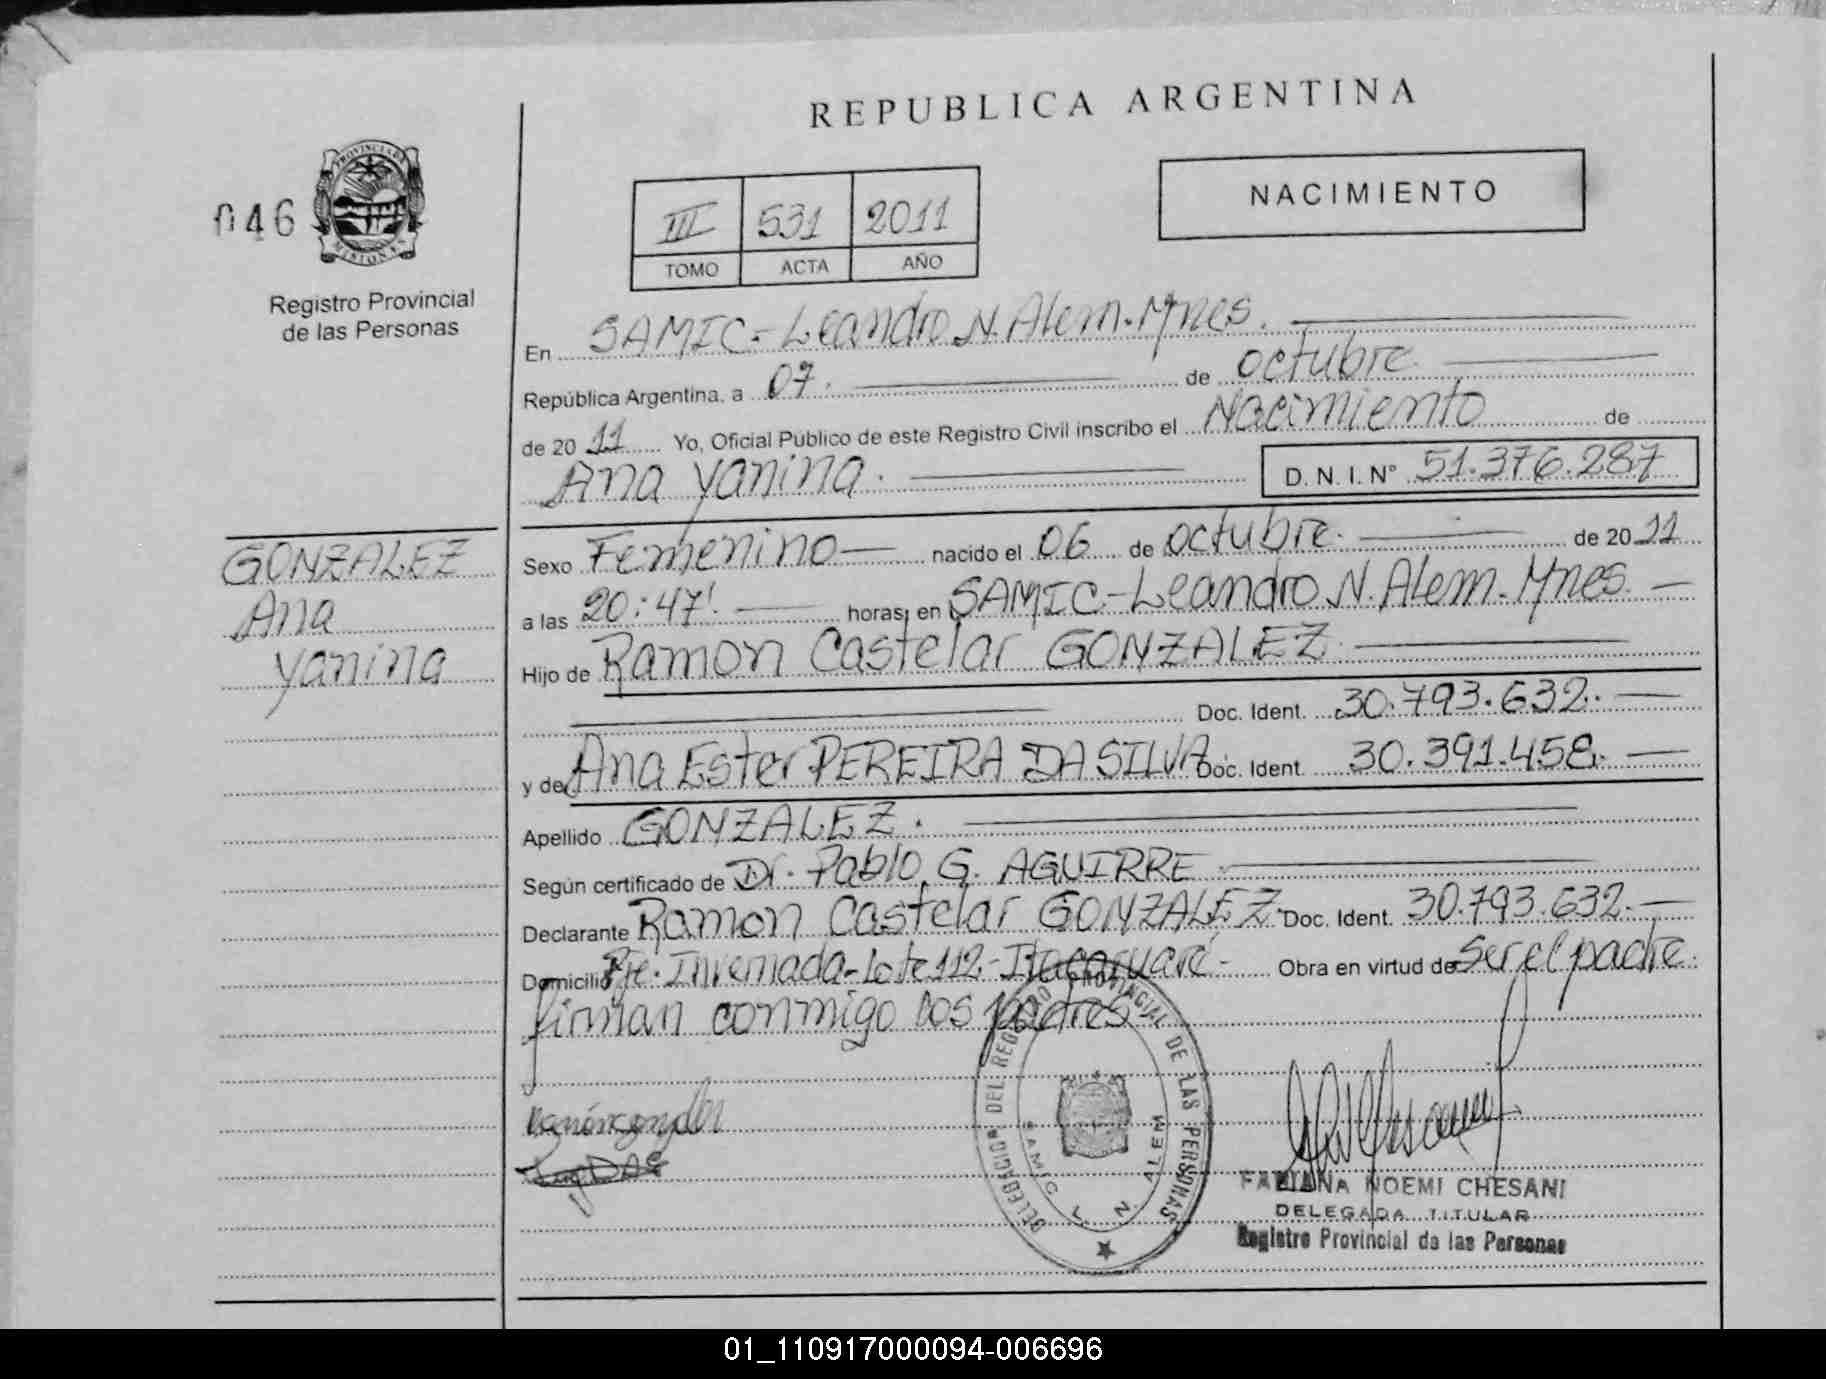 REPUBLICA ARGENTINA
NACIMIENTO
046
PROVINCIA DE MISIONES
Registro Provincial
de las Personas
III 531 2011
TOMO ACTA AÑO
En SAMIC - Leandro N. Alem. Mnes.
República Argentina, a 07. de octubre
de 2011 Yo, Oficial Público de este Registro Civil inscribo el Nacimiento de
Ana Yanina. D.N.I. Nº 51.376.287
GONZALEZ
Ana
Yanina
Sexo Femenino nacido el 06 de octubre. de 2011
a las 20:47'. horas, en SAMIC - Leandro N. Alem. Mnes.
Hijo de Ramon Castelar GONZALEZ
Doc. Ident. 30.793.632.
y de Ana Ester PEREIRA DA SILVA Doc. Ident. 30.391.458.
Apellido GONZALEZ.
Según certificado de Dr. Pablo G. AGUIRRE
Declarante Ramon Castelar GONZALEZ. Doc. Ident. 30.793.632.
Domicilio Pje. Invernada - Lote 112 - Itacaruaré - Obra en virtud de ser el padre.
firman conmigo los padres
DELEGACION DEL REGISTRO PROVINCIAL DE LAS PERSONAS
SAMIC L. N. ALEM
FABIANA NOEMI CHESANI
DELEGADA TITULAR
Registro Provincial de las Personas
01_110917000094-006696